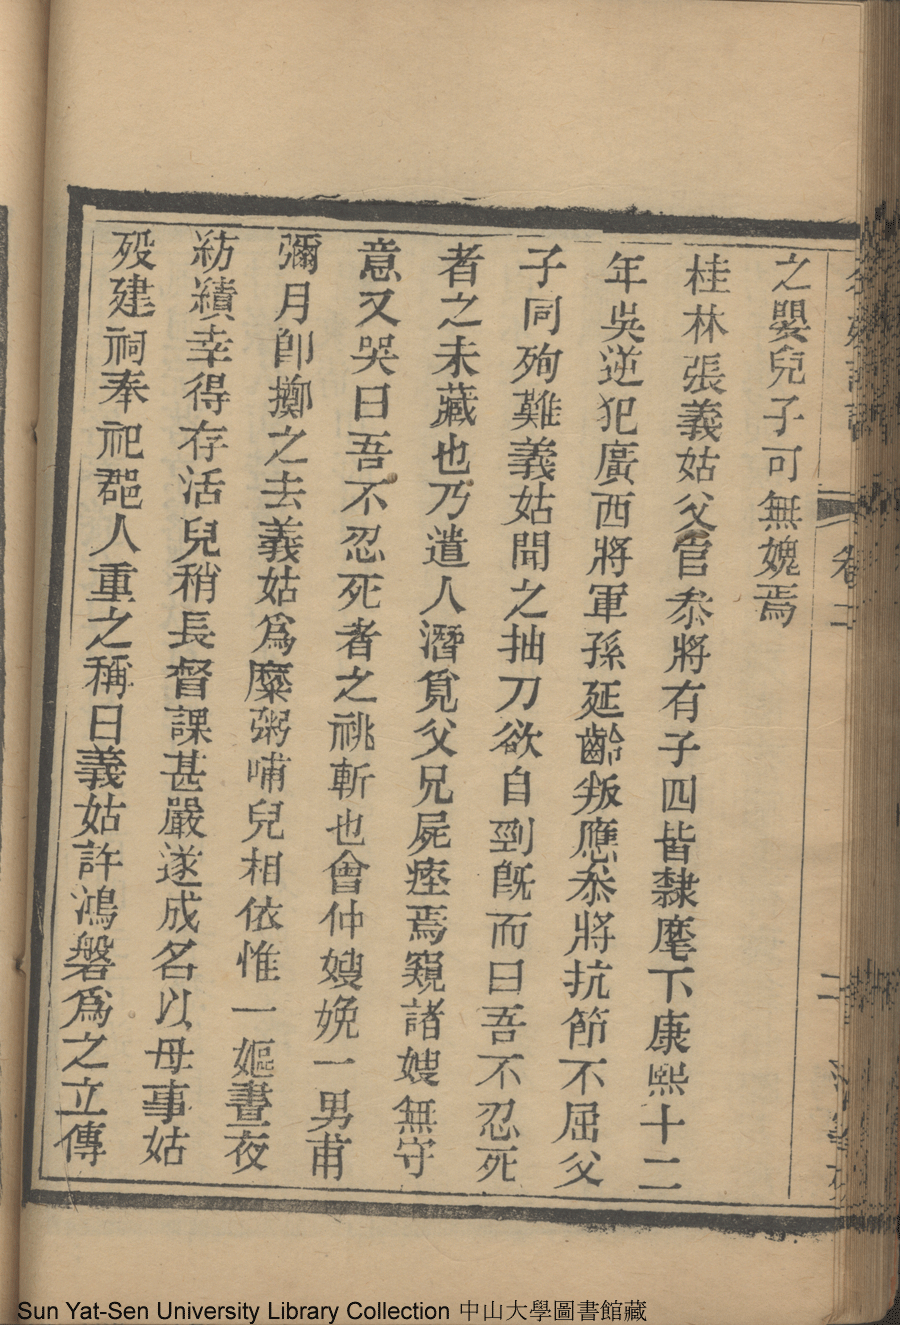 之嬰兒子可無媿焉
桂林張義姑父官叅將有子四皆隸麾下康熙十二
年吳逆犯廣西將軍孫延齡叛應叅將抗節不屈父
子同殉難義姑聞之抽刀欲自剄旣而曰吾不忍死
者之未藏也乃遣人潛覓父兄屍瘞焉窺諸嫂無守
意又哭曰吾不忍死者之祧斬也會仲嫂娩一男甫
彌月卽擲之去義姑爲糜粥哺兒相依惟一嫗晝夜
紡績幸得存活兒稍長督課甚嚴遂成名以母事姑
歿建祠奉祀郡人重之稱曰義姑許鴻磐爲之立傳
卷二
Sun Yat-Sen University Library Collection 中山大學圖書館藏